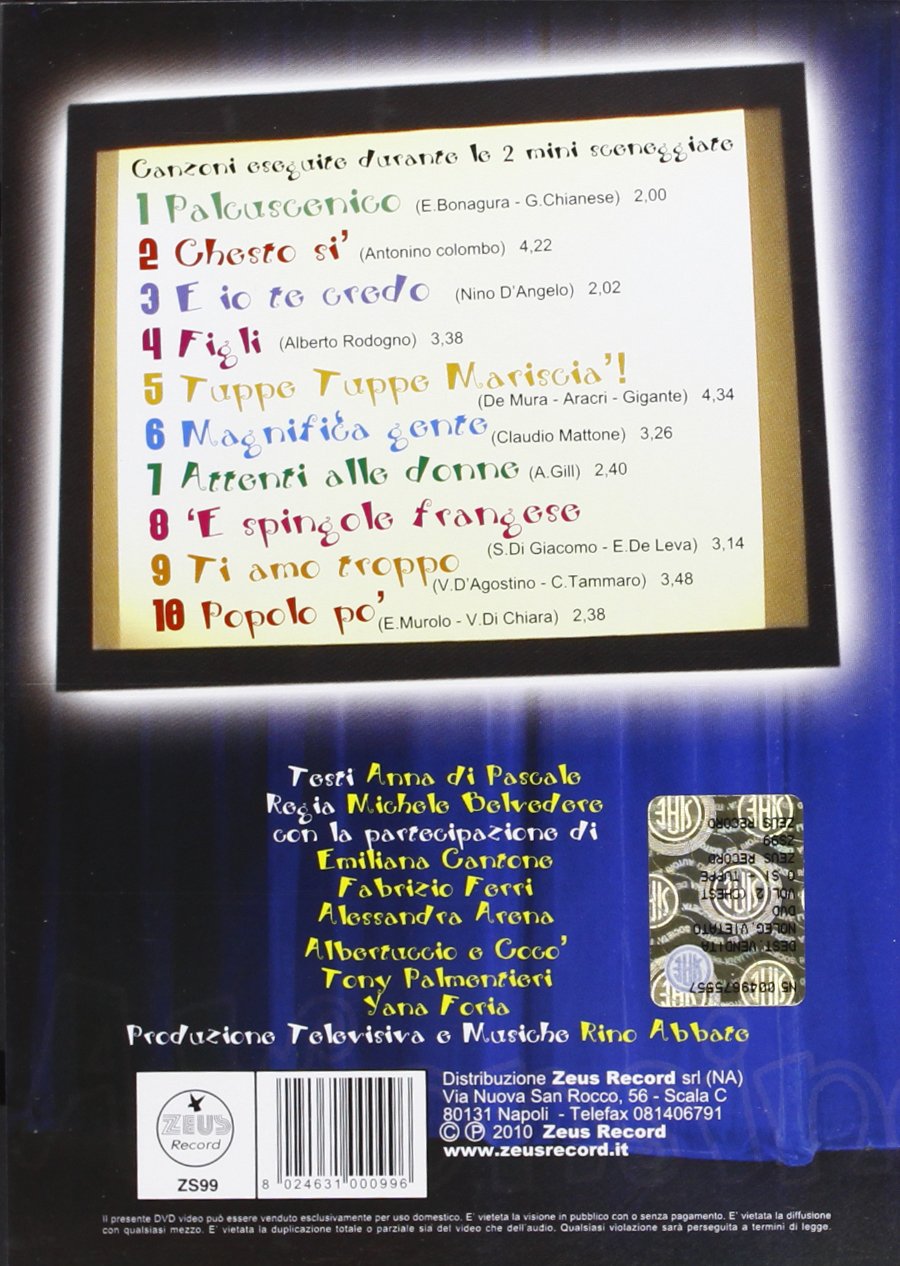 Canzoni eseguite durante le 2 mini sceneggiate
1 Palcuscenico (E.Bonagura - G.Chianese) 2,00
2 Chesto si' (Antonino colombo) 4,22
3 E io te credo (Nino D'Angelo) 2,02
4 Figli (Alberto Rodogno) 3,38
5 Tuppe Tuppe Mariscia'!
(De Mura - Aracri - Gigante) 4,34
6 Magnifica gente (Claudio Mattone) 3,26
7 Attenti alle donne (A.Gill) 2,40
8 'E spingole frangese
(S.Di Giacomo - E.De Leva) 3,14
9 Ti amo troppo (V.D'Agostino - C.Tammaro) 3,48
10 Popolo po' (E.Murolo - V.Di Chiara) 2,38
Testi Anna di Pascale
Regia Michele Belvedere
con la partecipazione di
Emiliana Cantone
Fabrizio Ferri
Alessandra Arena
Albertuccio e Coco'
Tony Palmentieri
Yana Foria
Produzione Televisiva e Musiche Rino Abbate
N5 0049675557
DEST.VENDITA
NOLEG.VIETATO
DVD
VOL 2 (CHEST
O SI - TUPPE
ZEUS RECORD
ZS99
ZEUS RECORD
ZEUS
Record
ZS99
8 024631 000996
Distribuzione Zeus Record srl (NA)
Via Nuova San Rocco, 56 - Scala C
80131 Napoli - Telefax 081406791
© ℗ 2010 Zeus Record
www.zeusrecord.it
Il presente DVD video può essere venduto esclusivamente per uso domestico. E' vieteta la visione in pubblico con o senza pagamento. E' vietata la diffusione
con qualsiasi mezzo. E' vietata la duplicazione totale o parziale sia del video che dell'audio. Qualsiasi violazione sarà perseguita a termini di legge.